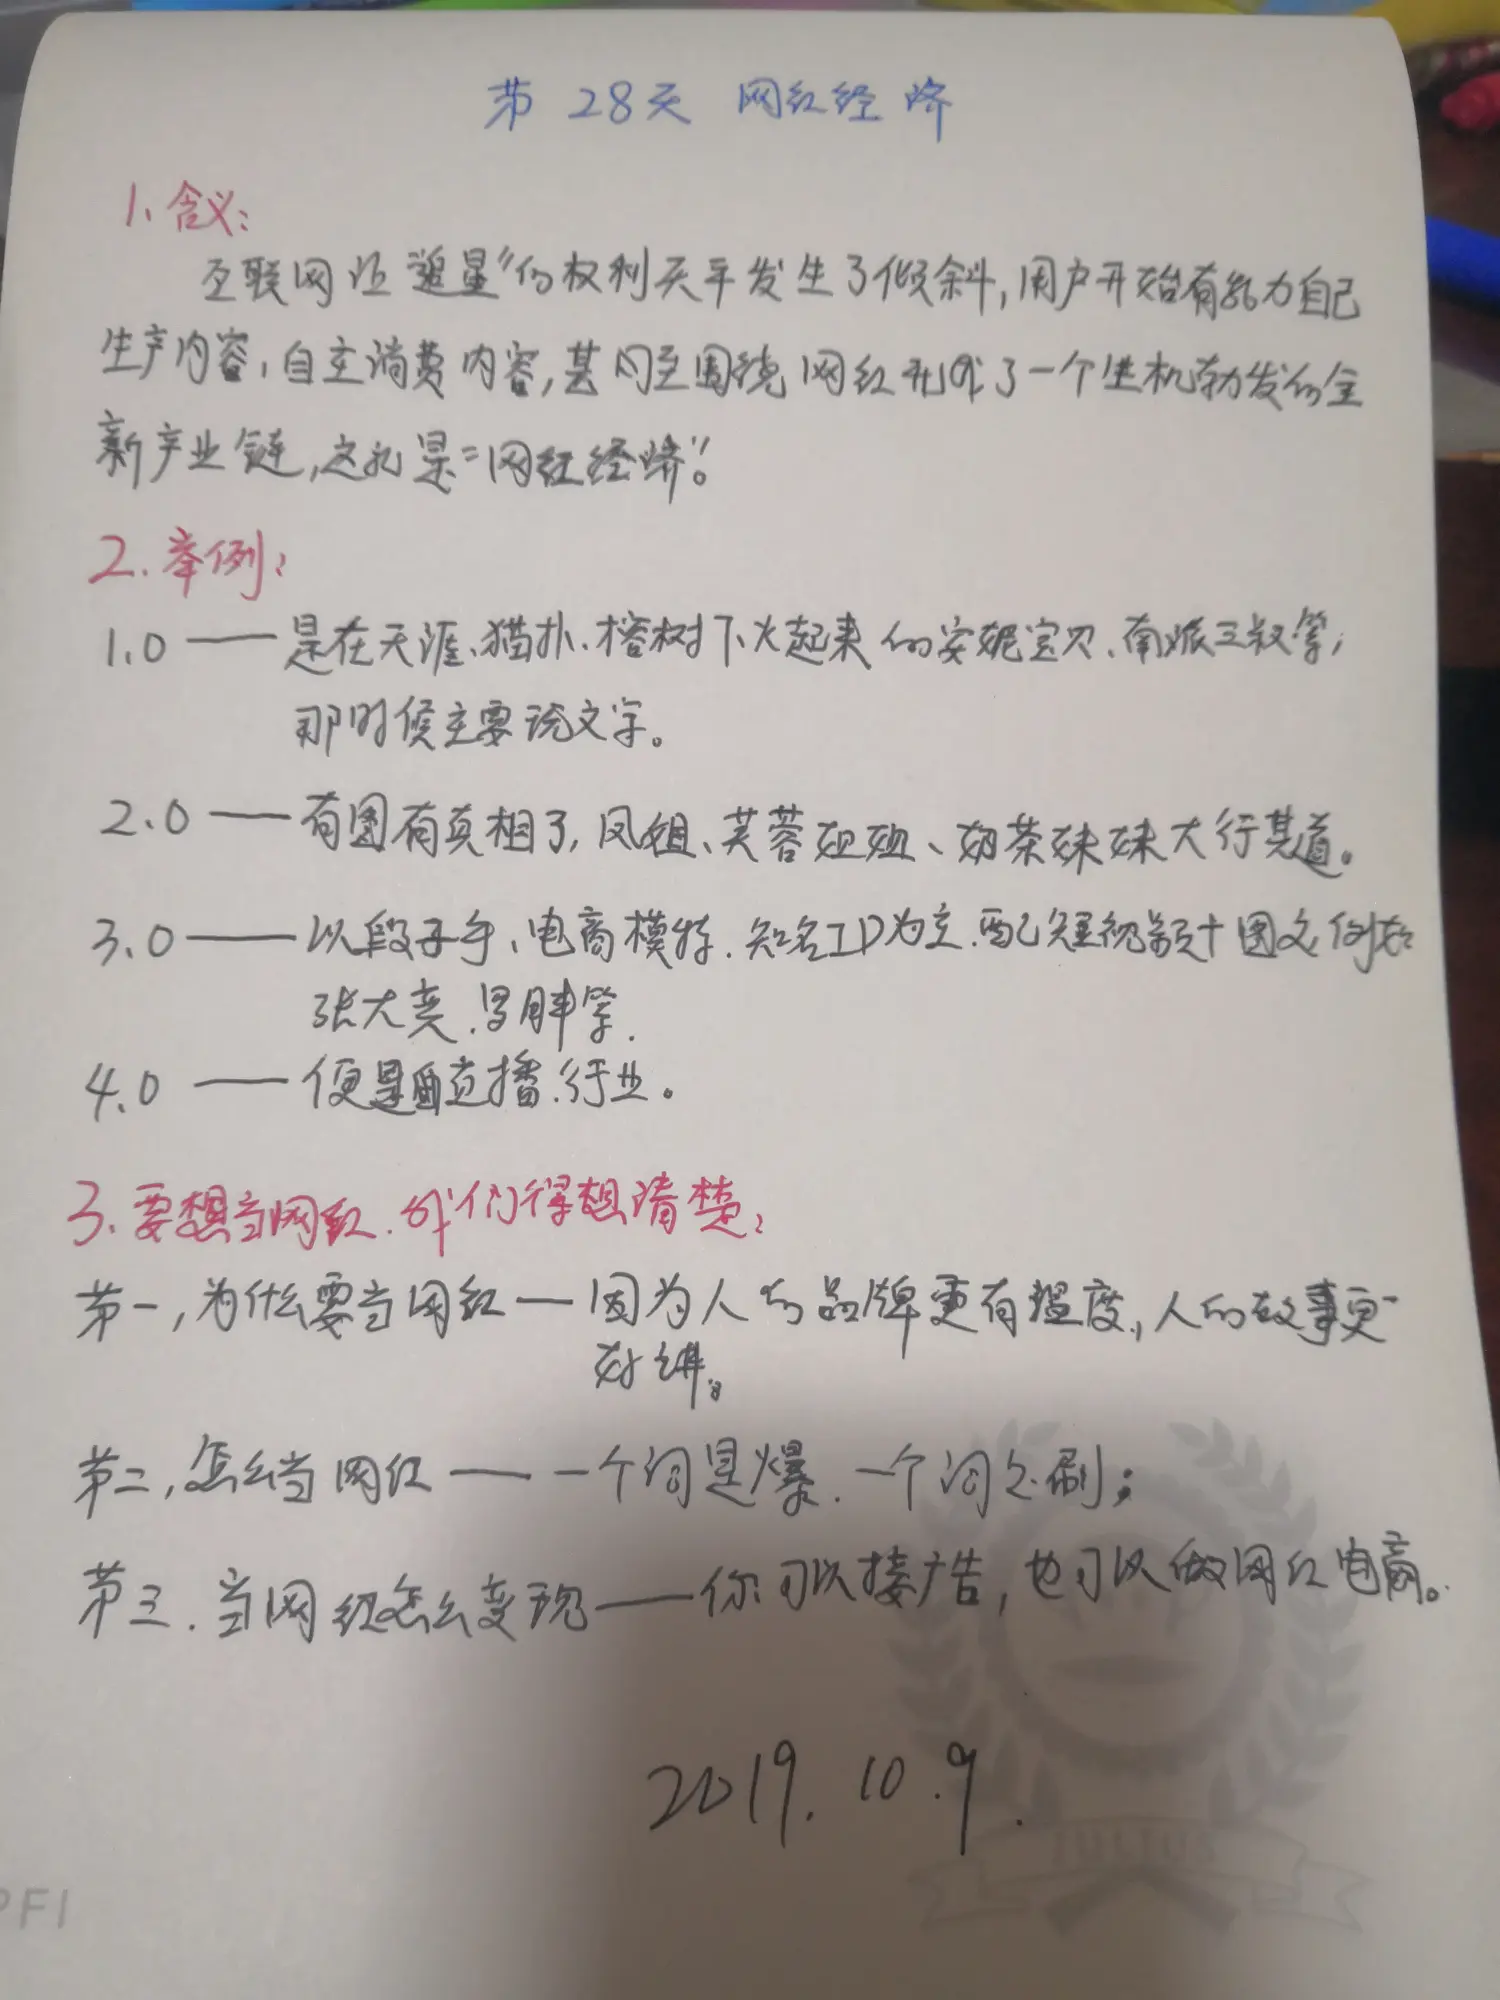 第 28天 网红经济
1、含义:
互联网让“追星”的权利天平发生了倾斜,用户开始有能力自己
生产内容,自主消费内容,甚内至围绕网红形成了一个生机勃发的全
新产业链,这就是“网红经济”。
2.举例:
1.0——是在天涯、猫扑、榕树下火起来的安妮宝贝、南派三叔等;
那时候主要说文字。
2.0——有图有真相了,凤姐、芙蓉姐姐、奶茶妹妹大行其道。
3.0——以段子手、电商模特、知名ID为主,配短视频+图文例如:
张大奕、罗胖等.
4.0——便是直播行业。
3.要想当网红,我们得想清楚:
第一,为什么要当网红—因为人的品牌更有温度,人的故事更
好讲。
第二,怎么当网红——一个词是爆,一个词是刷;
第三、当网红怎么变现——你可以接广告,也可以做网红电商。
2019.10.9.
PFI